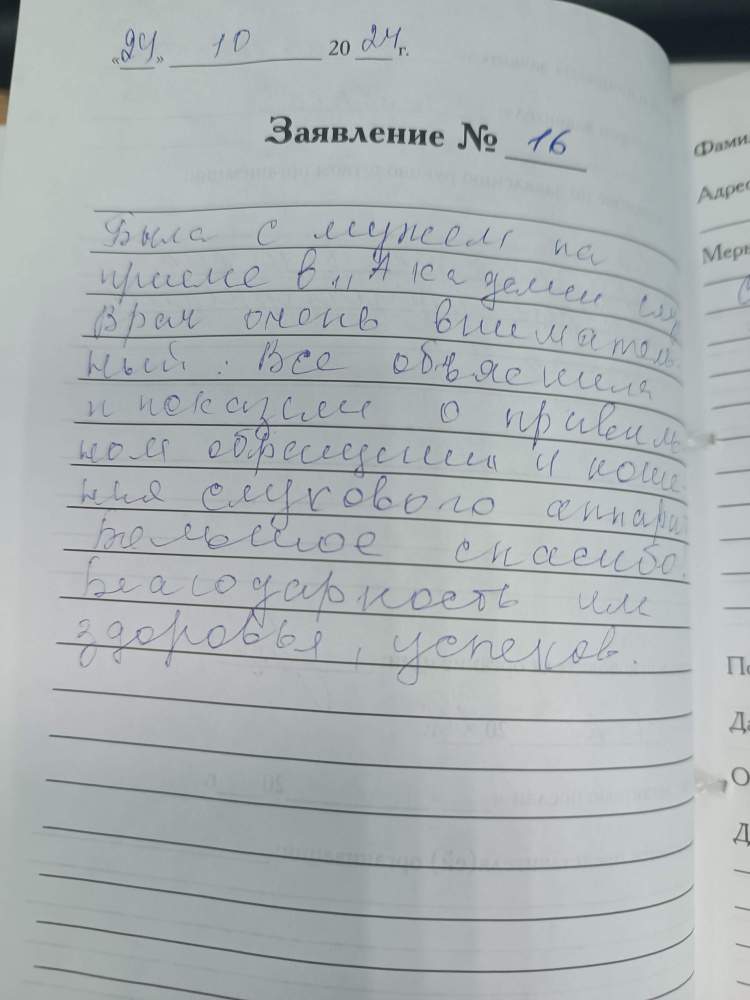 «24» 10 2024 г.
Заявление № 16
Была с мужем на
приеме в „Академеи слу
Врач очень вниматель
ный. Все объяснила
и показали о правиль
ном обращении и ноше
ния слухового аппара
Большое спасибо.
Благодарность им
здоровья, успехов.
Фами
Адрес
Меры
По
Да
О
Д